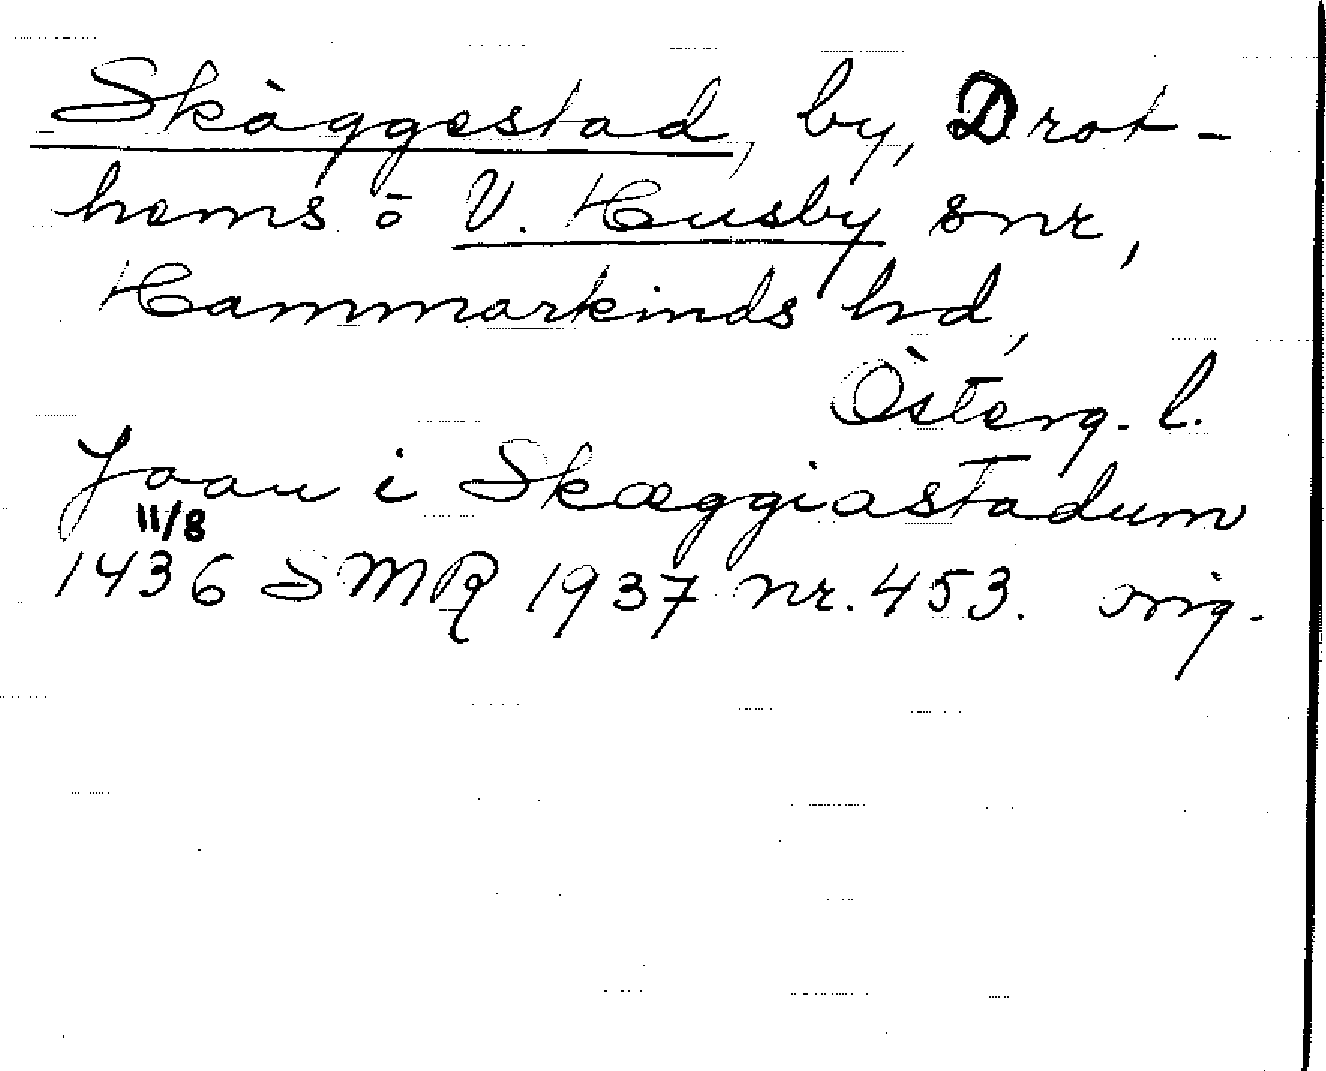 Skäggestad, by, Drot-
hems o V. Husby snr,
Hammarkinds hd,
Österg. l.
Joau i Skæggiastadum
11/8
1436 SMR 1937 nr. 453. orig.